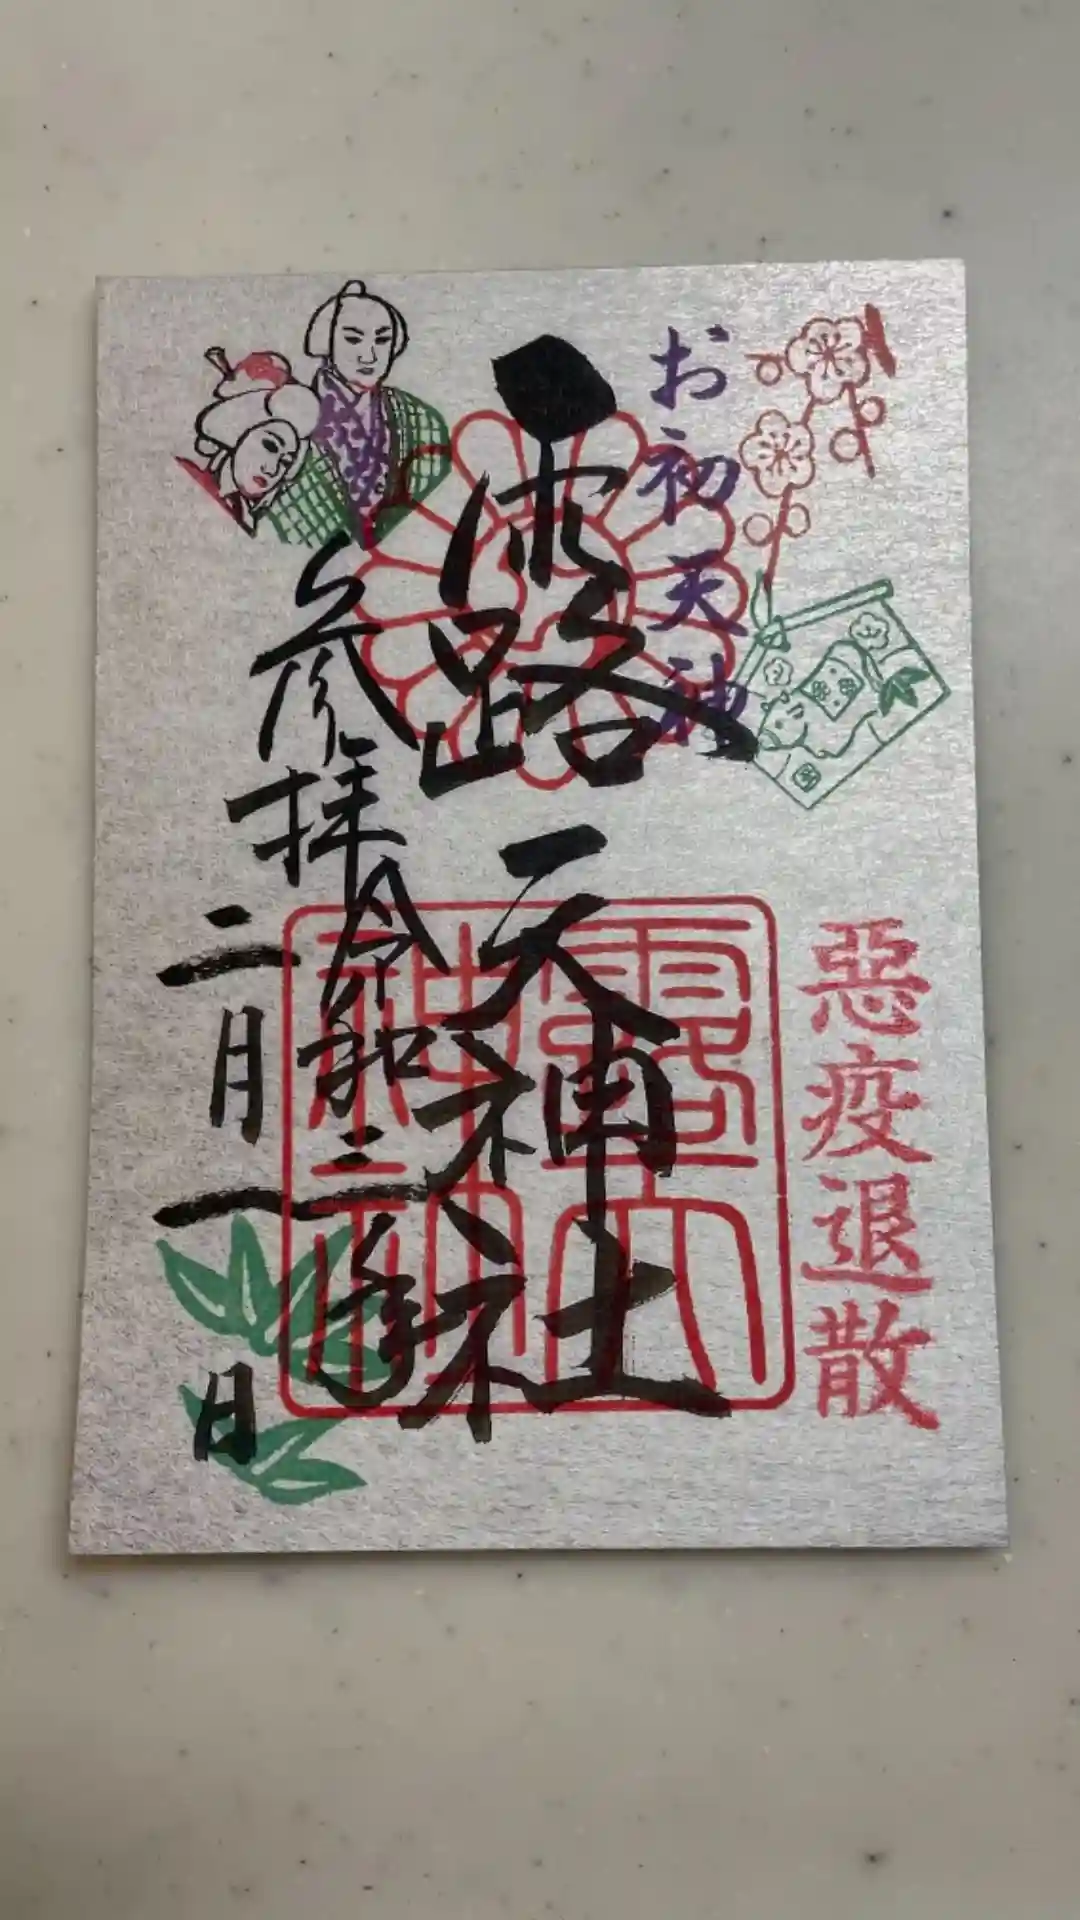 お初天神
惡疫退散
露天神社
露天
神社
参拝令和三年
二月一日